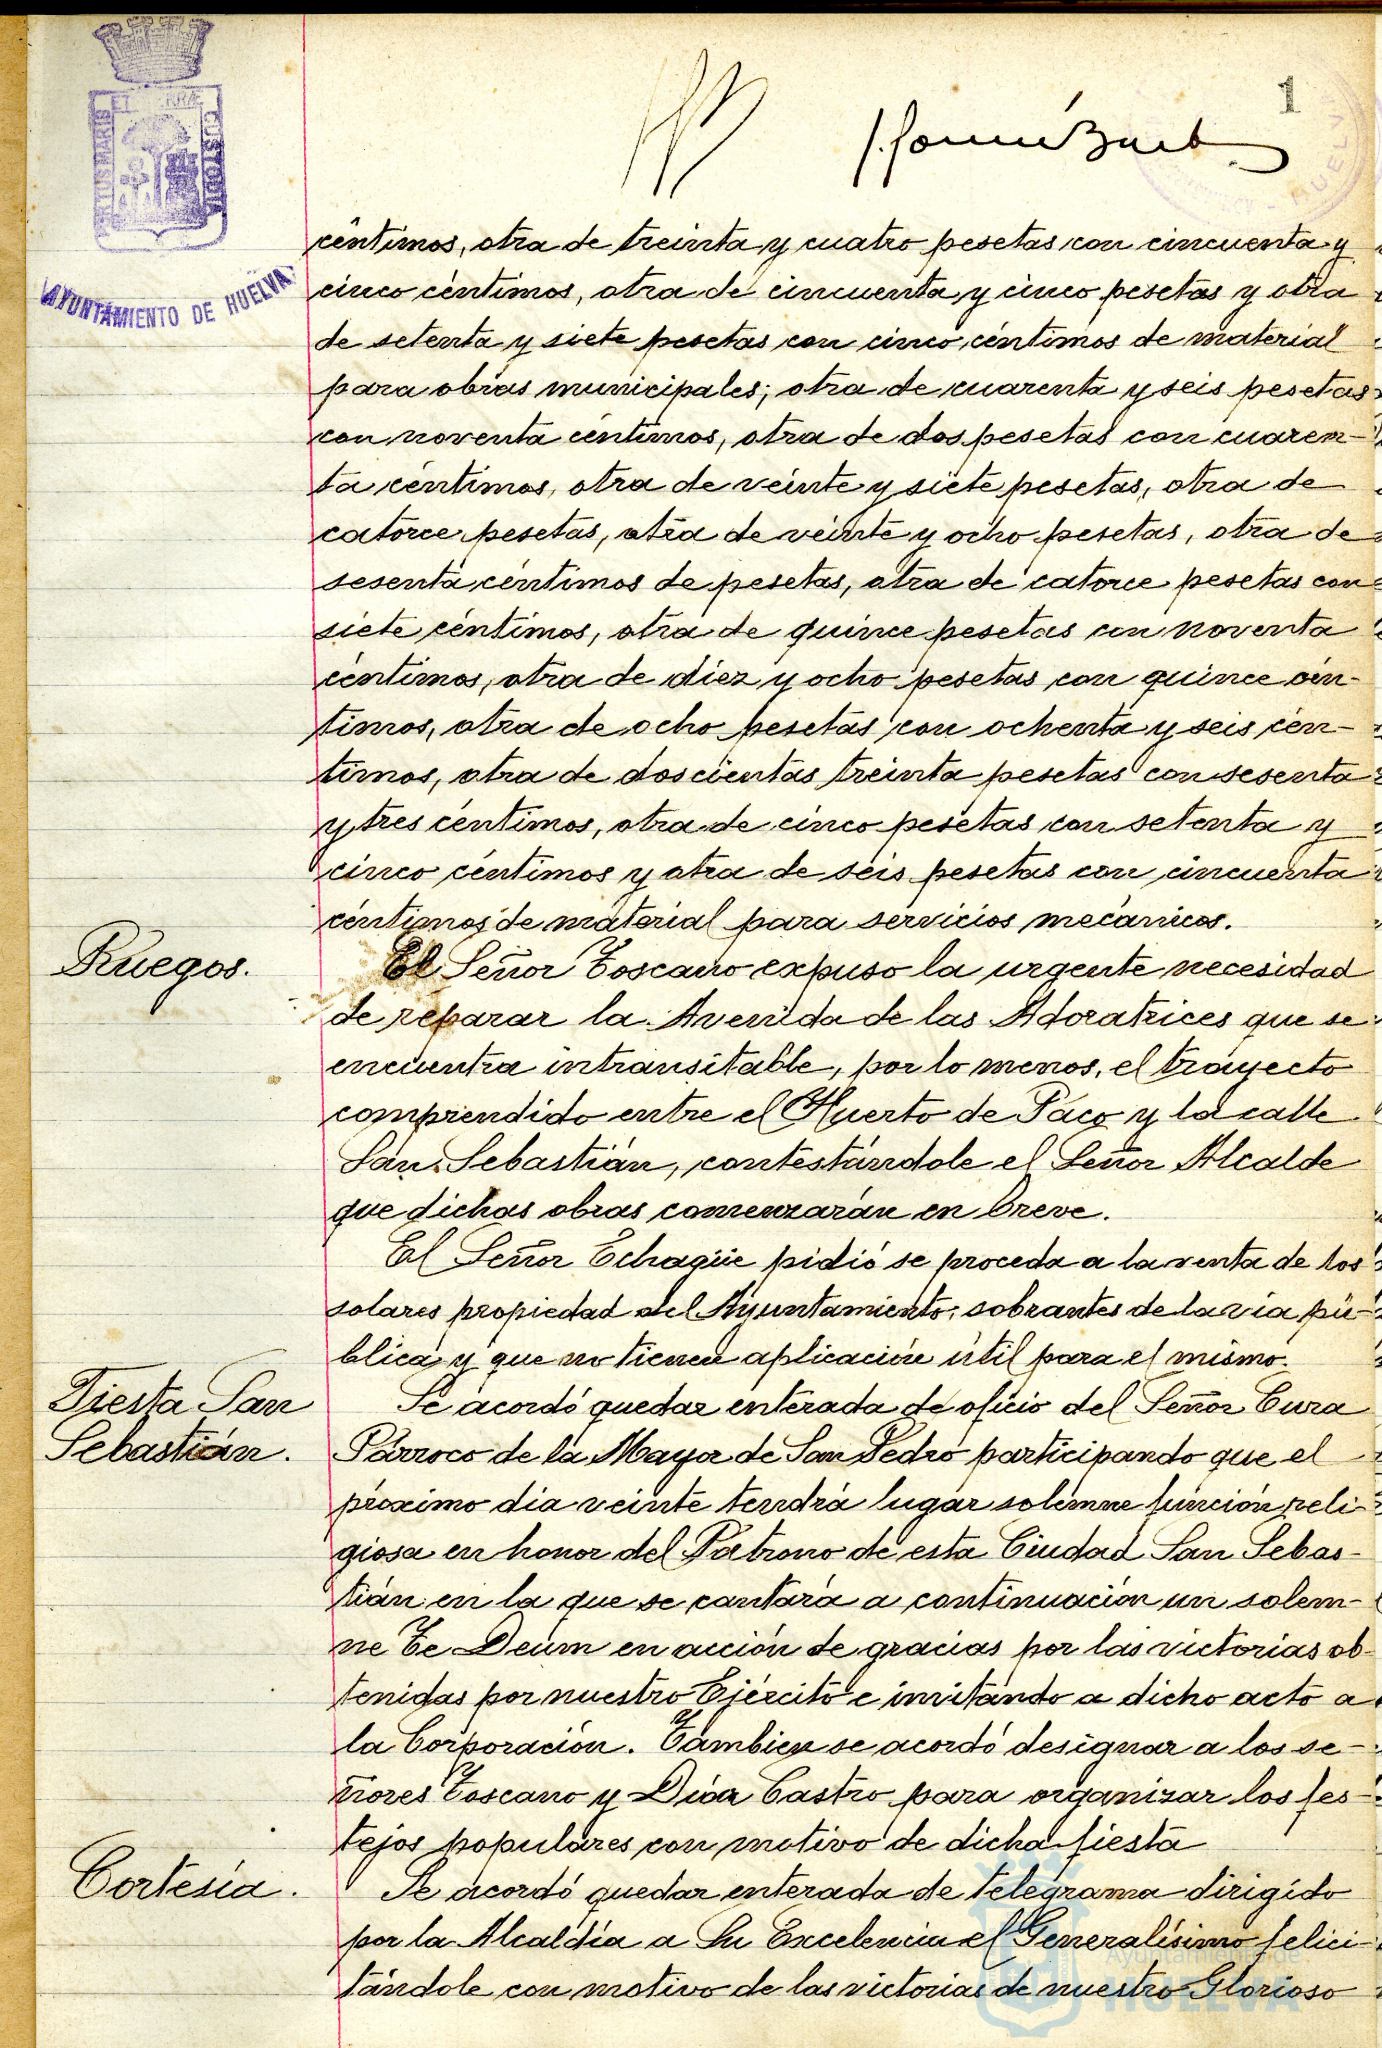 1
PORTUS MARIS
ET TERRÆ
CUSTODIA
AYUNTAMIENTO DE HUELVA
HUELVA
céntimos, otra de treinta y cuatro pesetas con cincuenta y
cinco céntimos, otra de cincuenta y cinco pesetas y otra
de setenta y siete pesetas con cinco céntimos de material
para obras municipales; otra de cuarenta y seis pesetas
con noventa céntimos, otra de dos pesetas con cuaren-
ta céntimos, otra de veinte y siete pesetas, otra de
catorce pesetas, otra de veinte y ocho pesetas, otra de
sesenta céntimos de pesetas, otra de catorce pesetas con
siete céntimos, otra de quince pesetas con noventa
céntimos, otra de diez y ocho pesetas con quince cén-
timos, otra de ocho pesetas con ochenta y seis cén-
timos, otra de doscientas treinta pesetas con sesenta
y tres céntimos, otra de cinco pesetas con setenta y
cinco céntimos y otra de seis pesetas con cincuenta
céntimos de material para servicios mecánicos.
Ruegos.
El Señor Toscano expuso la urgente necesidad
de reparar la Avenida de las Adoratrices que se
encuentra intransitable, por lo menos, el trayecto
comprendido entre el Huerto de Paco y la calle
San Sebastián, contestándole el Señor Alcalde
que dichas obras comenzarán en breve.
El Señor Echagüe pidió se proceda a la venta de los
solares propiedad del Ayuntamiento, sobrantes de la vía pú-
blica y que no tienen aplicación útil para el mismo.
Fiesta San
Sebastián.
Se acordó quedar enterada de oficio del Señor Cura
Párroco de la Mayor de San Pedro participando que el
próximo día veinte tendrá lugar solemne función reli-
giosa en honor del Patrono de esta Ciudad San Sebas-
tián en la que se cantará a continuación un solem-
ne Te Deum en acción de gracias por las victorias ob-
tenidas por nuestro Ejército e invitando a dicho acto a
la Corporación. Tambien se acordó designar a los se-
ñores Toscano y Díaz Castro para organizar los fes-
tejos populares con motivo de dicha fiesta
Cortesía.
Se acordó quedar enterada de telégrama dirigido
por la Alcaldía a Su Excelencia el Generalísimo felici-
tándole con motivo de las victorias de nuestro Glorioso
Ayuntamiento de
HUELVA